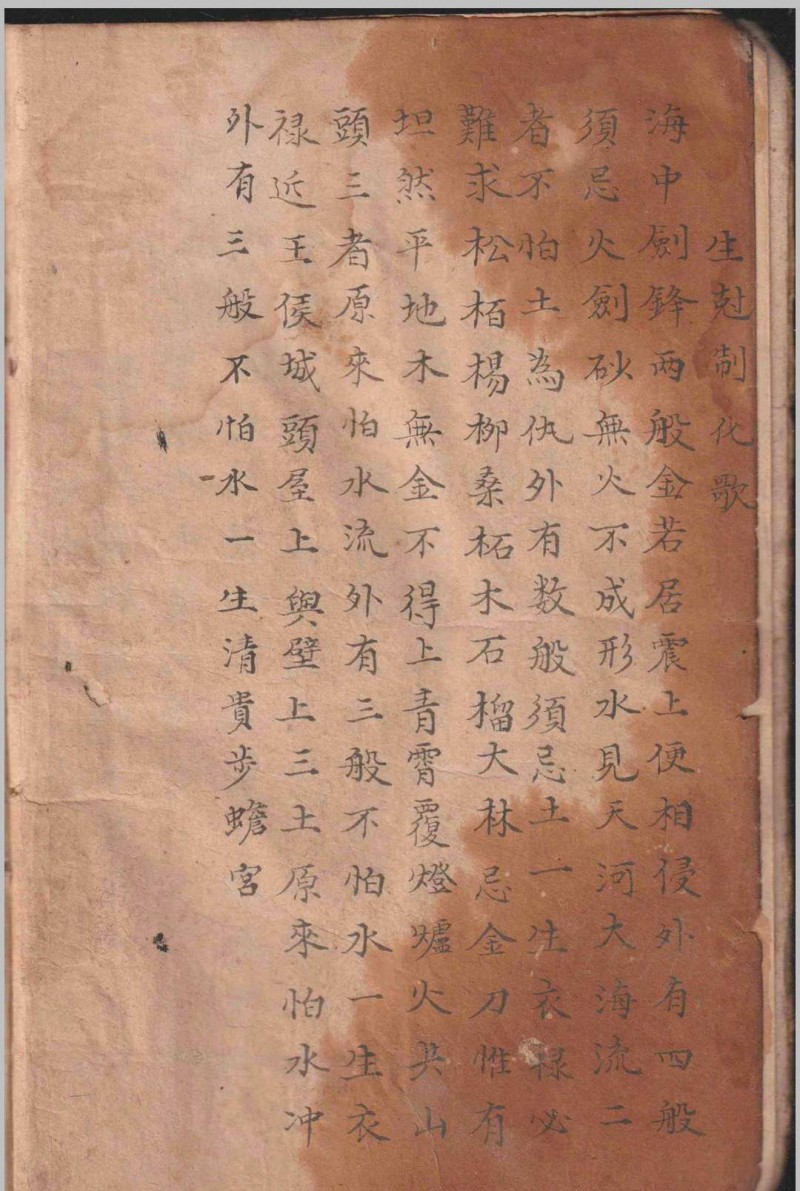 生尅制化歌
海中劍鋒两般金若居震上便相侵外有四般
須忌火劍砂無火不成形水見天河大海流二
者不怕土為仇外有数般須忌土一生衣禄必
難求松栢楊柳桑柘木石榴大林忌金刀惟有
坦然平地木無金不得上青霄覆燈爐火共山
頭三者原來怕水流外有三般不怕水一生衣
禄近王侯城頭屋上與壁上三土原來怕水冲
外有三般不怕水一生清貴步蟾宮